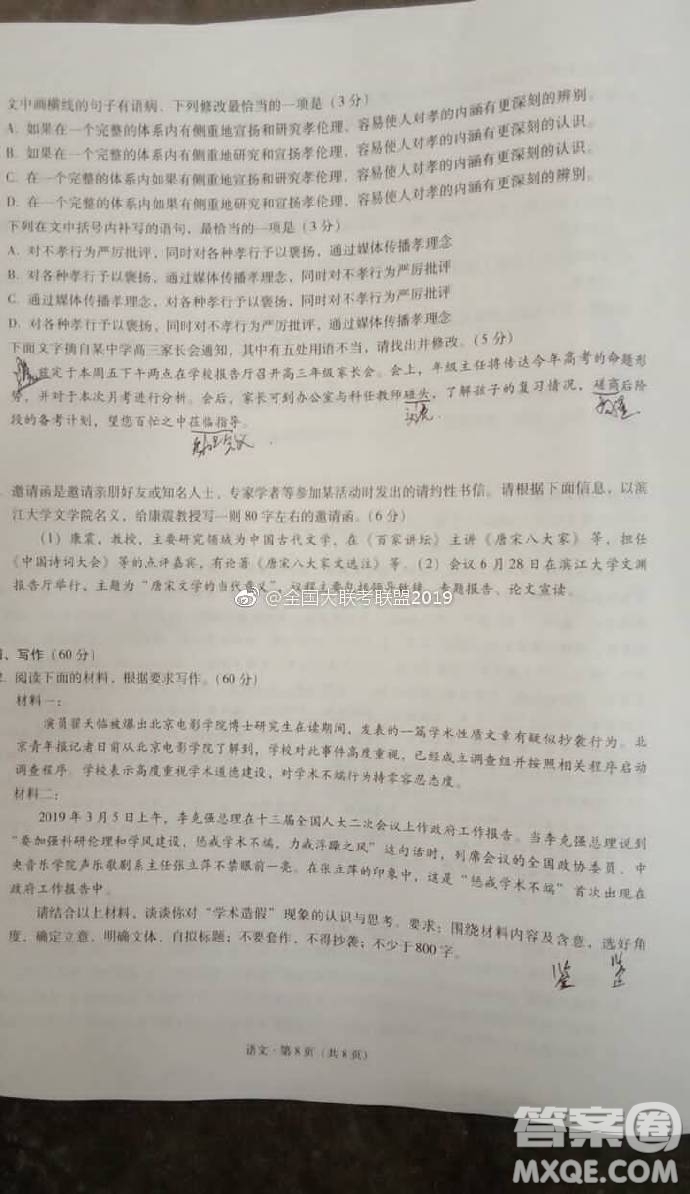 文中画横线的句子有语病，下列修改最恰当的一项是（3分）
A. 如果在一个完整的体系内有侧重地宣扬和研究孝伦理，容易使人对孝的内涵有更深刻的辨别。
B. 如果在一个完整的体系内有侧重地研究和宣扬孝伦理，容易使人对孝的内涵有更深刻的认识。
C. 在一个完整的体系内如果有侧重地宣扬和研究孝伦理，容易使人对孝的内涵有更深刻的认识。
D. 在一个完整的体系内如果有侧重地研究和宣扬孝伦理，容易使人对孝的内涵有更深刻的辨别。
下列在文中括号内补写的语句，最恰当的一项是（3分）
A. 对不孝行为严厉批评，同时对各种孝行予以褒扬，通过媒体传播孝理念
B. 对各种孝行予以褒扬，通过媒体传播孝理念，同时对不孝行为严厉批评
C. 通过媒体传播孝理念，对各种孝行予以褒扬，同时对不孝行为严厉批评
D. 对各种孝行予以褒扬，同时对不孝行为严厉批评，通过媒体传播孝理念
下面文字摘自某中学高三家长会通知，其中有五处用语不当，请找出并修改。（5分）
兹定于本周五下午两点在学校报告厅召开高三年级家长会。会上，年级主任将传达今年高考的命题形
势，并对于本次月考进行分析。会后，家长可到办公室与科任教师碰头，了解孩子的复习情况，磋商后阶
段的备考计划，望您百忙之中莅临指导。
交流
邀请函是邀请亲朋好友或知名人士、专家学者等参加某活动时发出的请约性书信。请根据下面信息，以滨
江大学文学院名义，给康震教授写一则80字左右的邀请函。（6分）
（1）康震，教授，主要研究领域为中国古代文学，在《百家讲坛》主讲《唐宋八大家》等，担任
《中国诗词大会》等的点评嘉宾，有论著《唐宋八大家文选注》等。（2）会议6月28日在滨江大学文渊
报告厅举行，主题为“唐宋文学的当代意义”，议程主要包括领导致辞、专题报告、论文宣读。
@全国大联考联盟2019
、写作（60分）
2. 阅读下面的材料，根据要求写作。（60分）
材料一：
演员翟天临被爆出北京电影学院博士研究生在读期间，发表的一篇学术性质文章有疑似抄袭行为。北
京青年报记者日前从北京电影学院了解到，学校对此事件高度重视，已经成立调查组并按照相关程序启动
调查程序。学校表示高度重视学术道德建设，对学术不端行为持零容忍态度。
材料二：
2019年3月5日上午，李克强总理在十三届全国人大二次会议上作政府工作报告。当李克强总理说到
“要加强科研伦理和学风建设，惩戒学术不端，力戒浮躁之风”这句话时，列席会议的全国政协委员、中
央音乐学院声乐歌剧系主任张立萍不禁眼前一亮。在张立萍的印象中，这是“惩戒学术不端”首次出现在
政府工作报告中。
请结合以上材料，谈谈你对“学术造假”现象的认识与思考。要求：围绕材料内容及含意，选好角
度，确定立意，明确文体，自拟标题；不要套作，不得抄袭；不少于800字。
语文·第8页（共8页）
答案圈
MXQE.COM